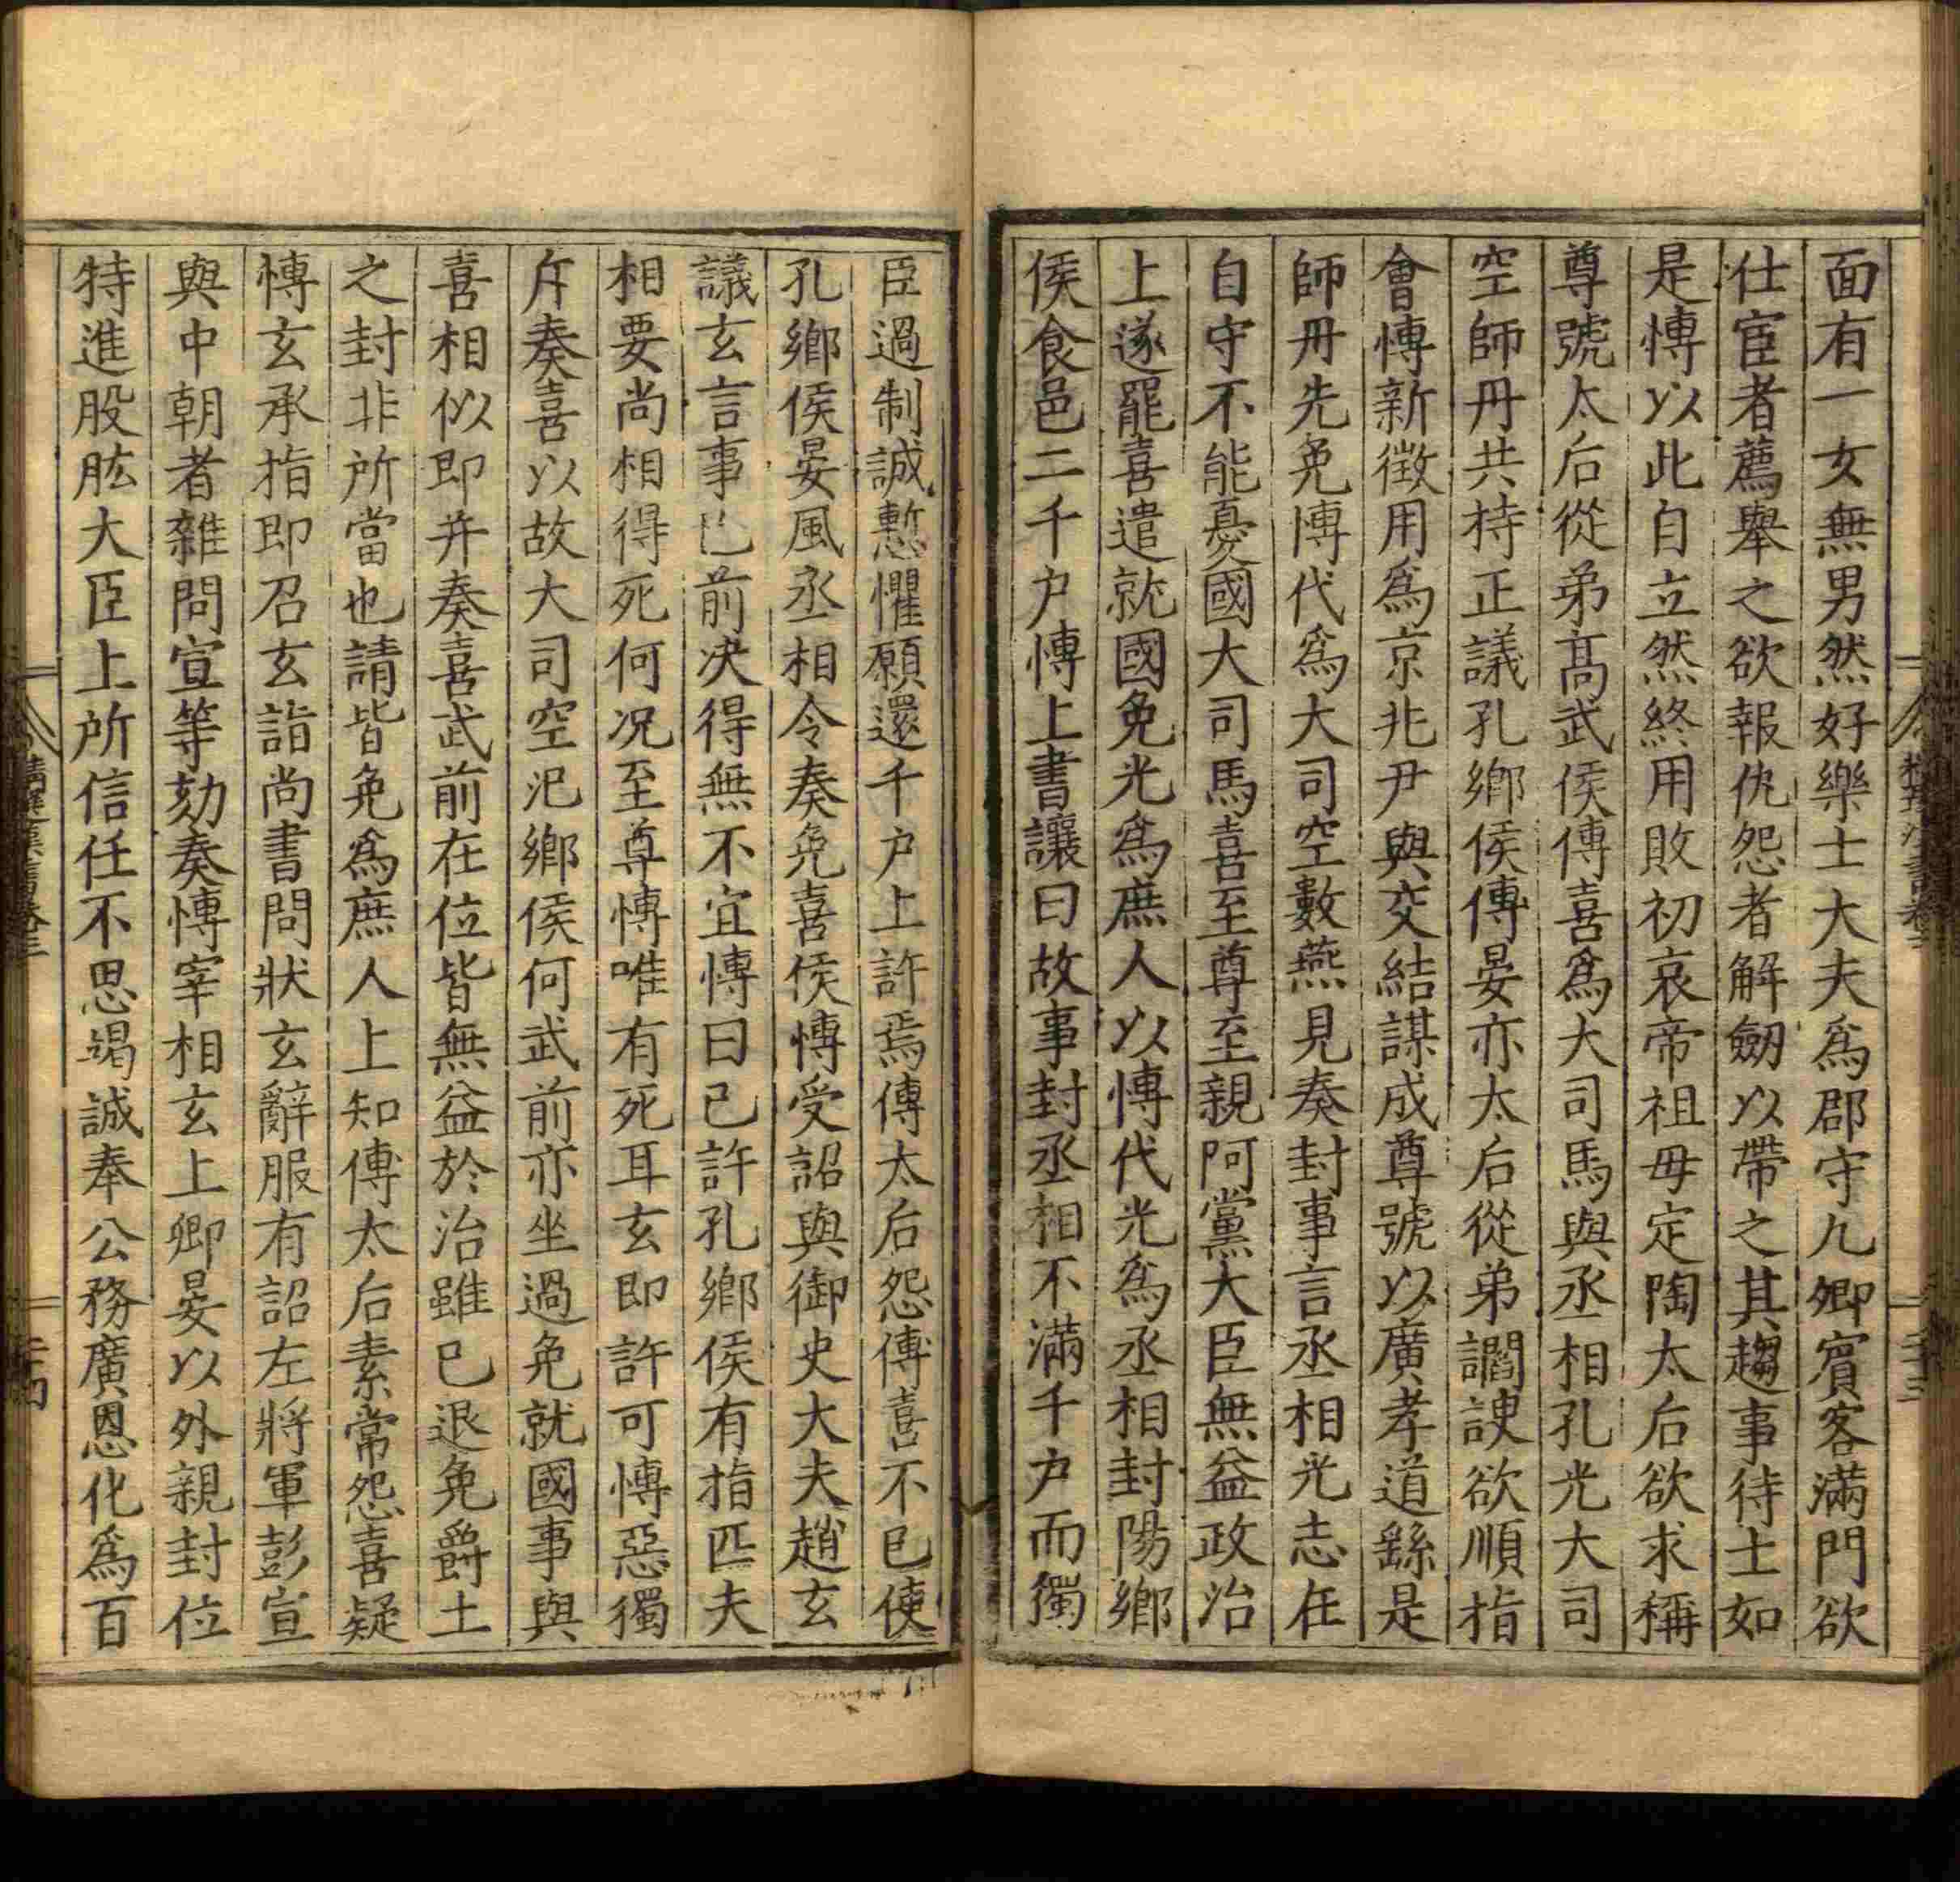 面有一女無男然好樂士大夫爲郡守九卿賓客滿門欲
仕宦者薦舉之欲報仇怨者解劒以帶之其趨事待士如
是愽以此自立然終用敗初哀帝祖母定陶太后欲求稱
尊號太后從弟髙武侯傅喜爲大司馬與丞相孔光大司
空師丹共持正議孔鄉侯傅晏亦太后從弟讇諛欲順指
會愽新徵用爲京兆尹與交結謀成尊號以廣孝道繇是
師丹先免愽代爲大司空數燕見奏封事言丞相光志在
自守不能憂國大司馬喜至尊至親阿黨大臣無益政治
上遂罷喜遣就國免光爲庶人以愽代光爲丞相封陽鄉
侯食邑二千户愽上書讓曰故事封丞相不滿千户而獨
臣過制誠慙懼願還千户上許焉傅太后怨傅喜不已使
孔鄉侯晏風丞相令奏免喜侯愽受詔與御史大夫趙玄
議玄言事已前决得無不宜愽曰已許孔鄉侯有指匹夫
相要尚相得死何况至尊愽唯有死耳玄即許可愽惡獨
斥奏喜以故大司空汜鄉侯何武前亦坐過免就國事與
喜相似即并奏喜武前在位皆無益於治雖已退免爵土
之封非所當也請皆免爲庶人上知傅太后素常怨喜疑
愽玄承指即召玄詣尚書問狀玄辭服有詔左將軍彭宣
與中朝者雜問宣等劾奏愽宰相玄上卿晏以外親封位
特進股肱大臣上所信任不思竭誠奉公務廣恩化爲百